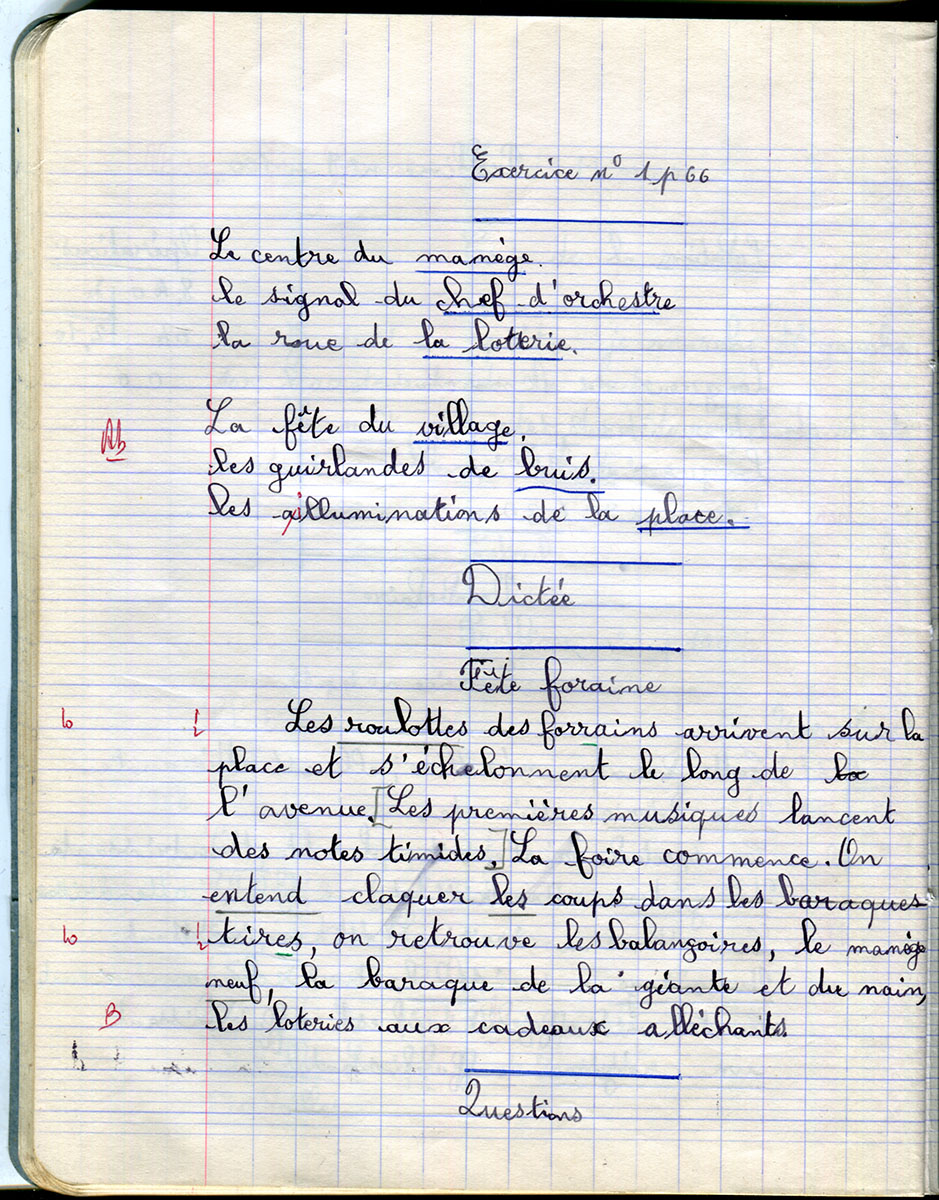 Exercice n° 1 p 66
Le centre du manège.
le signal du chef d'orchestre
la roue de la lotterie.
La fête du village.
Ab
les guirlandes de buis.
les illuminations de la place.
Dictée
Fête foraine
Les roulottes des forrains arrivent sur la
place et s'échelonnent le long de la
l'avenue. [Les premières musiques lancent
des notes timides.] La foire commence. On
entend claquer les coups dans les baraques
tires, on retrouve les balançoires, le manège
neuf, la baraque de la géante et du nain,
B
les loteries aux cadeaux alléchants
Questions